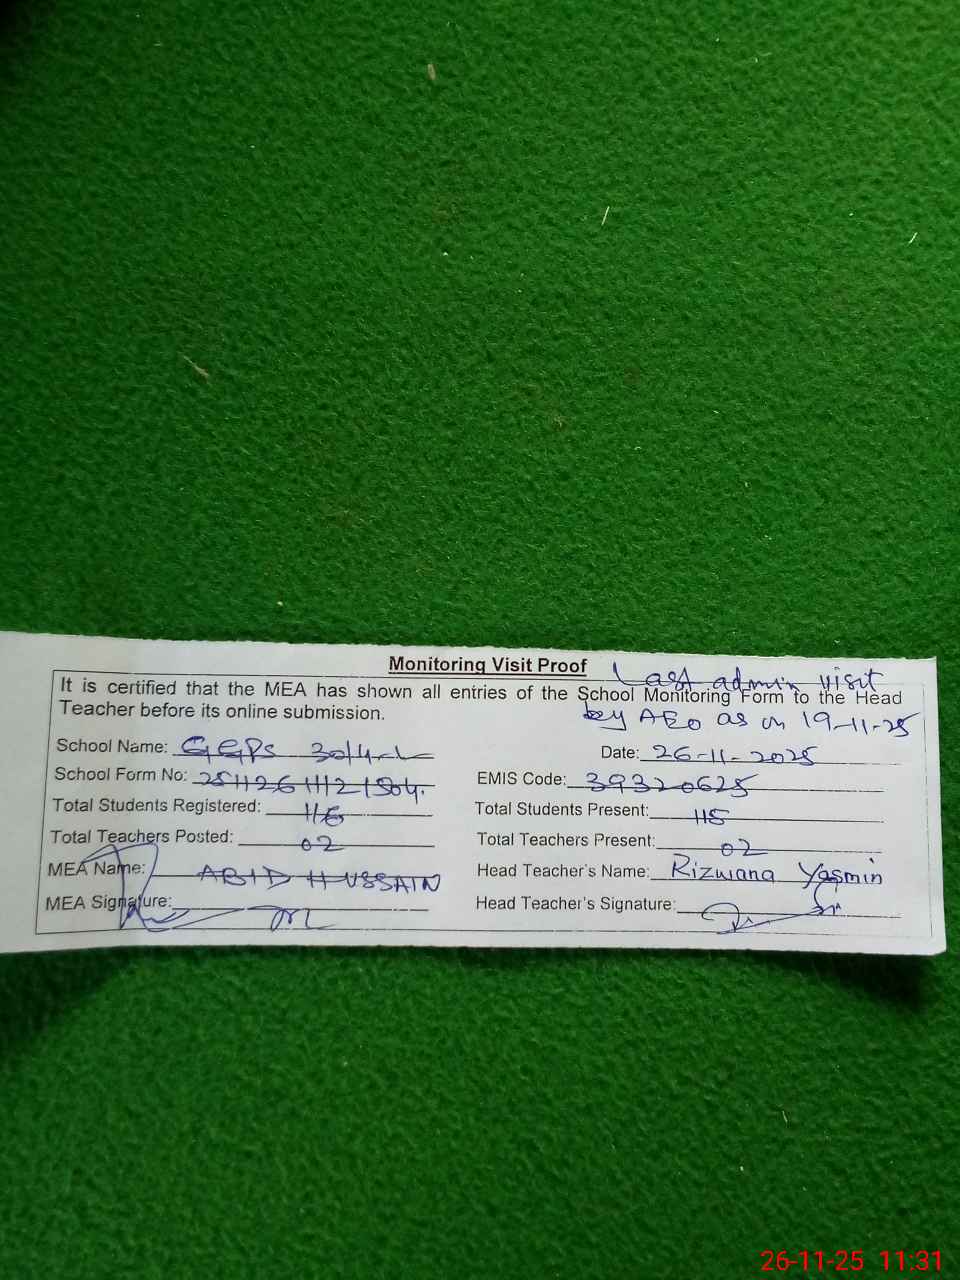 Monitoring Visit Proof
Last admin visit
It is certified that the MEA has shown all entries of the School Monitoring Form to the Head
Teacher before its online submission.
by AEO as on 19-11-25
School Name: GGPS 30/4-L
Date: 26-11-2025
School Form No:
EMIS Code: 39320625
Total Students Registered: 116
Total Students Present: 115
Total Teachers Posted: 02
Total Teachers Present: 02
MEA Name: ABID HUSSAIN
Head Teacher's Name: Rizwana Yasmin
MEA Signature:
Head Teacher's Signature:
26-11-25 11:31